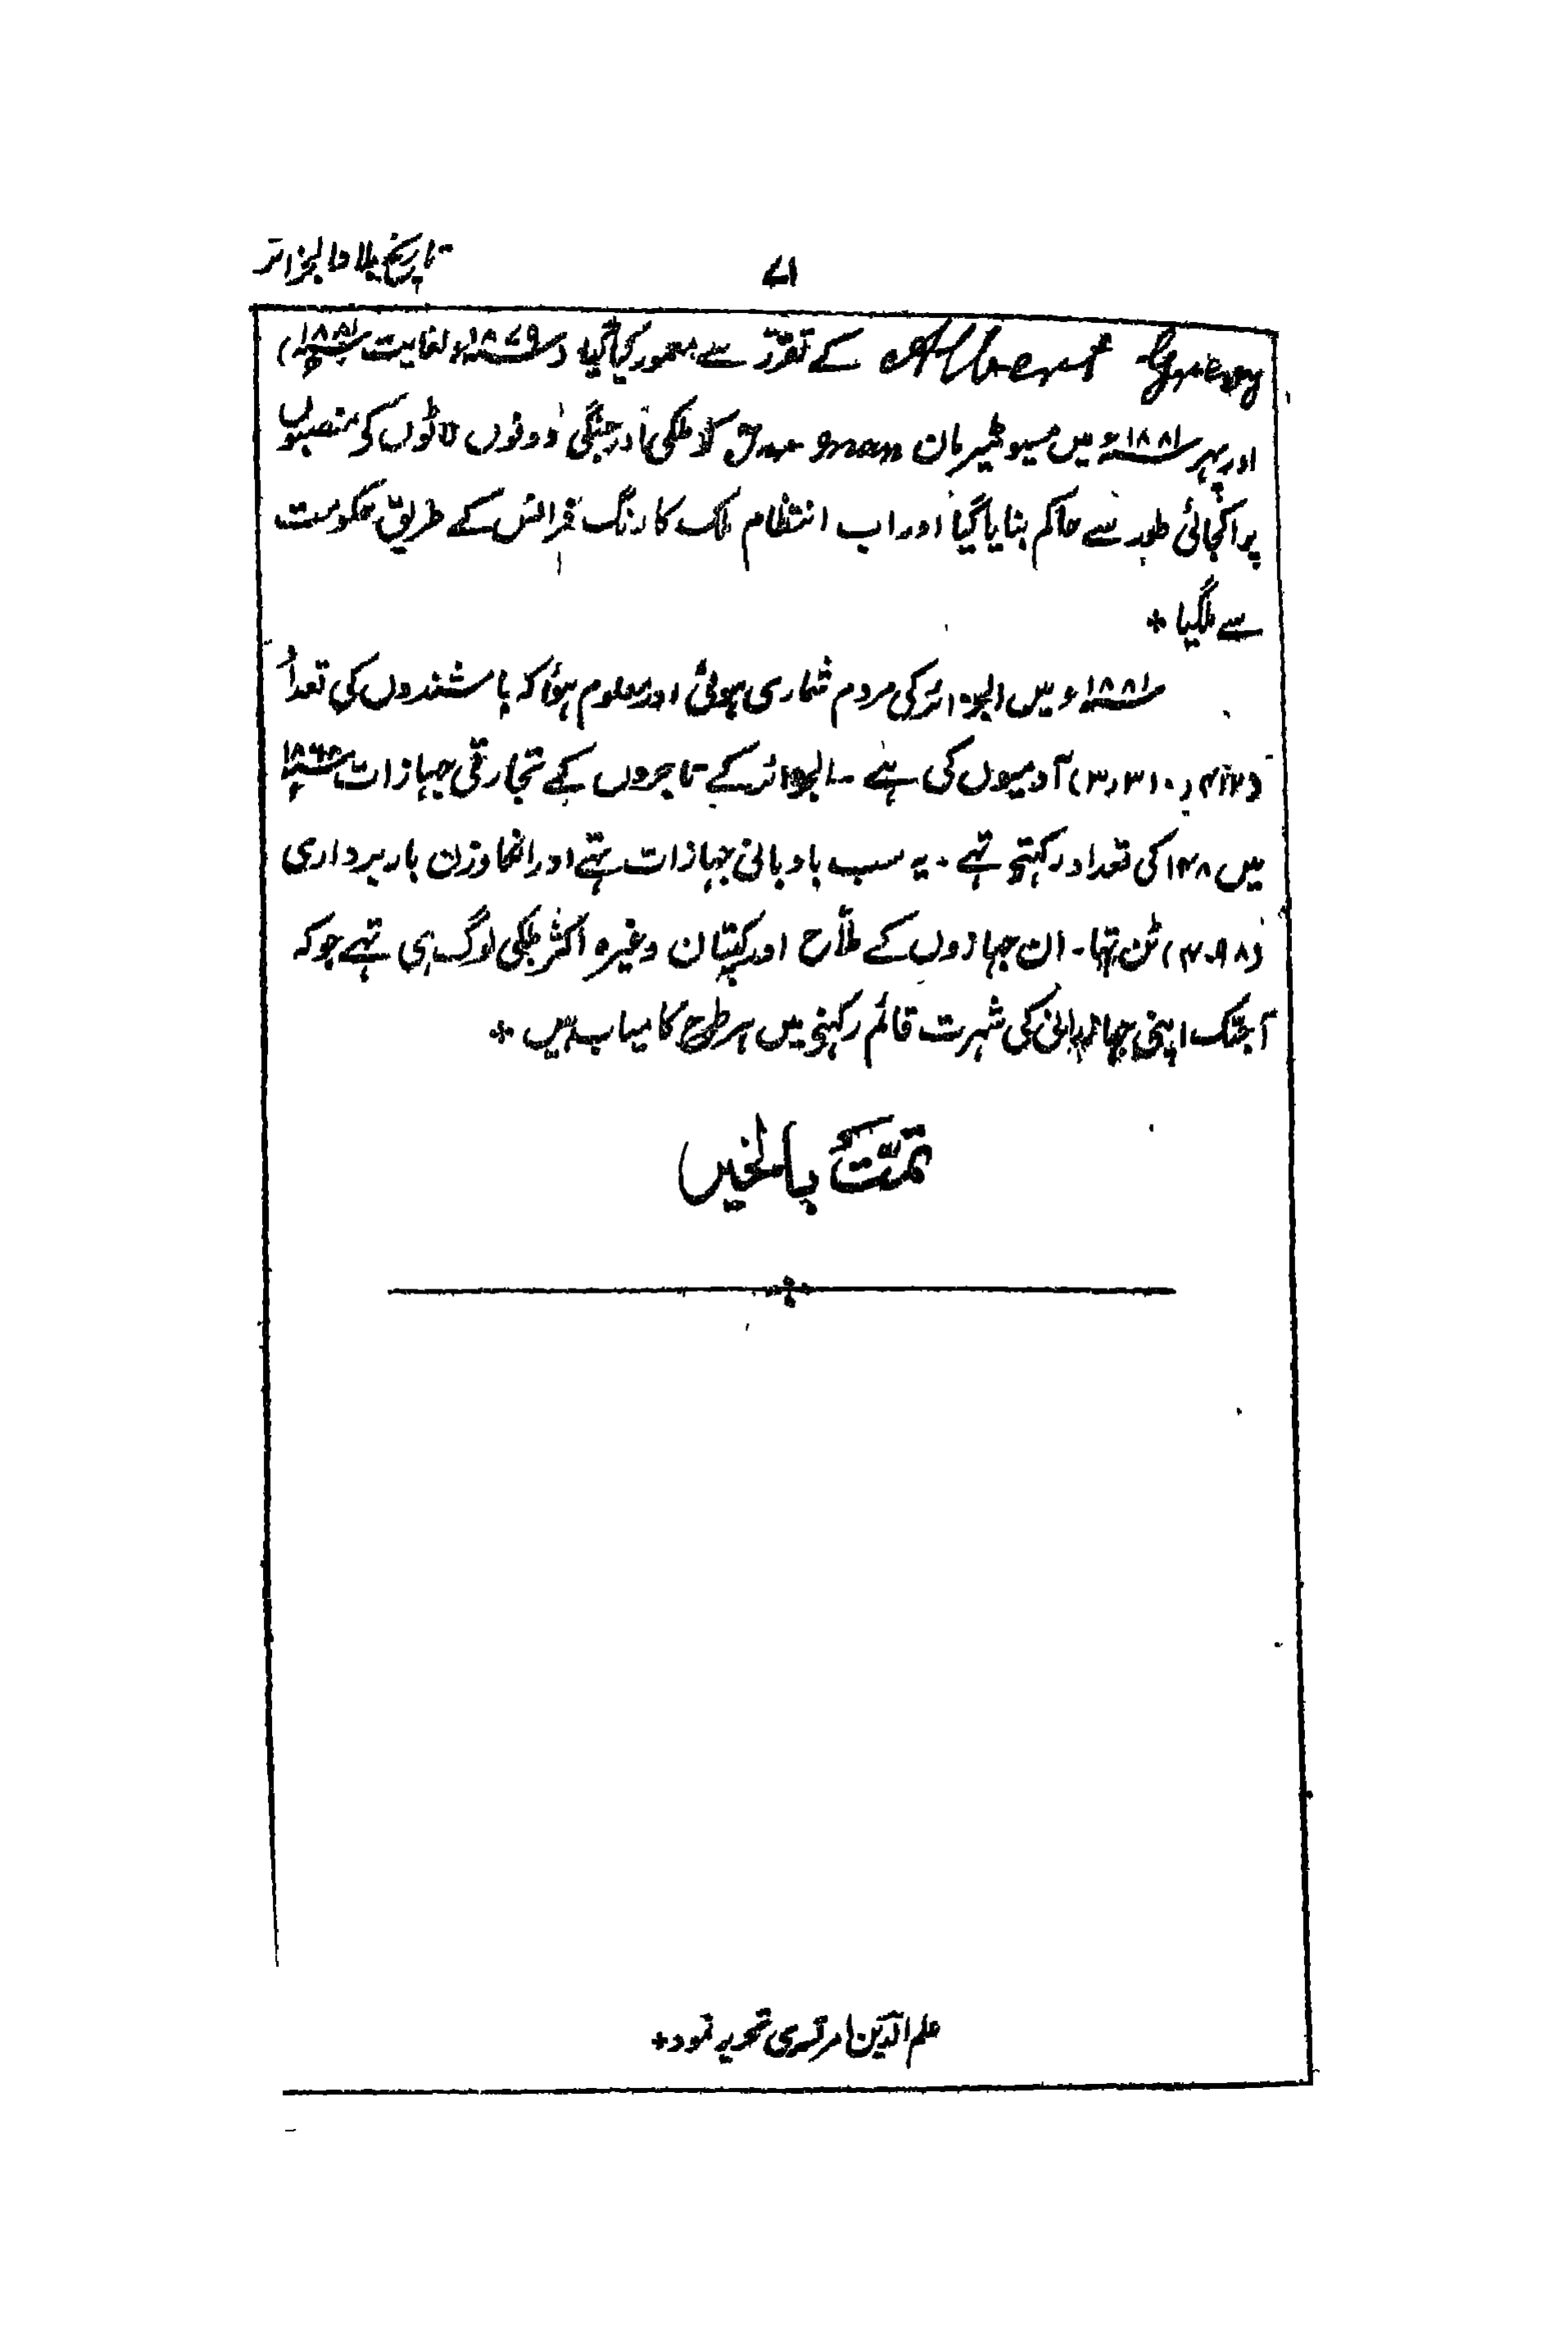 تاریخ بلاد الجزائر
۷۱
Albert Grevy کے تقرّر سے معمور کیا گیا (۱۸۷۹ء لغایت ۱۸۸۱ء)
اور پہر ۱۸۸۱ء میں مسیو ٹیرمان man کو ملکی اور جنگی دونوں کی منصبوں
پر اکجائی طور سے حاکم بنایا گیا اور اب انتظام ملک کا رنگ فرانس کے طریق حکومت
سے ملگیا *
۱۸۸۱ء میں الجزائر کی مردم شماری ہوئی اور معلوم ہؤا کہ باشندوں کی تعداد
(۳٫۳۱۰٫۴۱۲) آدمیوں کی ہے ۔ الجزائر کے تاجروں کے تجارتی جہازات ۱۸۶۸ء
میں ۱۴۸ کی تعداد رکہتے تہے ۔ یہ سب بادبانی جہازات تہے اور انکا وزن باربرداری
(۴۰۹۸) ٹن تہا ۔ ان جہازوں کے ملّاح اور کپتان وغیرہ اکثر ملکی لوگ ہی تہے جو کہ
آجتک اپنی جہازرانی کی شہرت قائم رکہنے میں ہر طرح کامیاب ہیں *
تمّت بالخیر
علم الدّین امرتسری تحریر نمود *